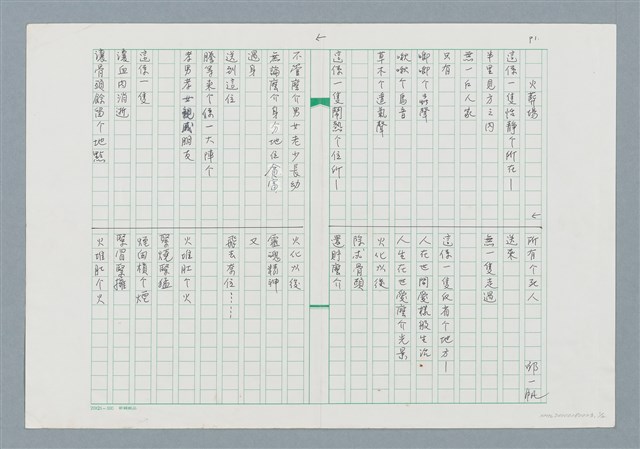 P1.
火葬場
邱一帆
這係一隻恬靜个所在－
半里見方之內
無一戶人家
只有
唧唧个蟲聲
啾啾个鳥音
草木个遙亂聲
這係一隻鬧熱个住所－
所有个死人
送來
無一隻走過
這係一隻反省个地方－
人在世間愛樣般生活
人生在世愛麼介光景
火化以後
除忒骨頭
還賸麼介
不管麼介男女老少長幼
無論麼介身分地位貧富
過身
送到這位
騰等來个係一大陣个
孝男孝女親戚朋友
這係一隻
讓血肉消逝
讓骨頭餘留个地點
火化以後
靈魂精神
又
飛去奈位……
火堆肚个火
緊燒緊猛
煙囪槓个煙
緊冒緊擁
火堆肚个火